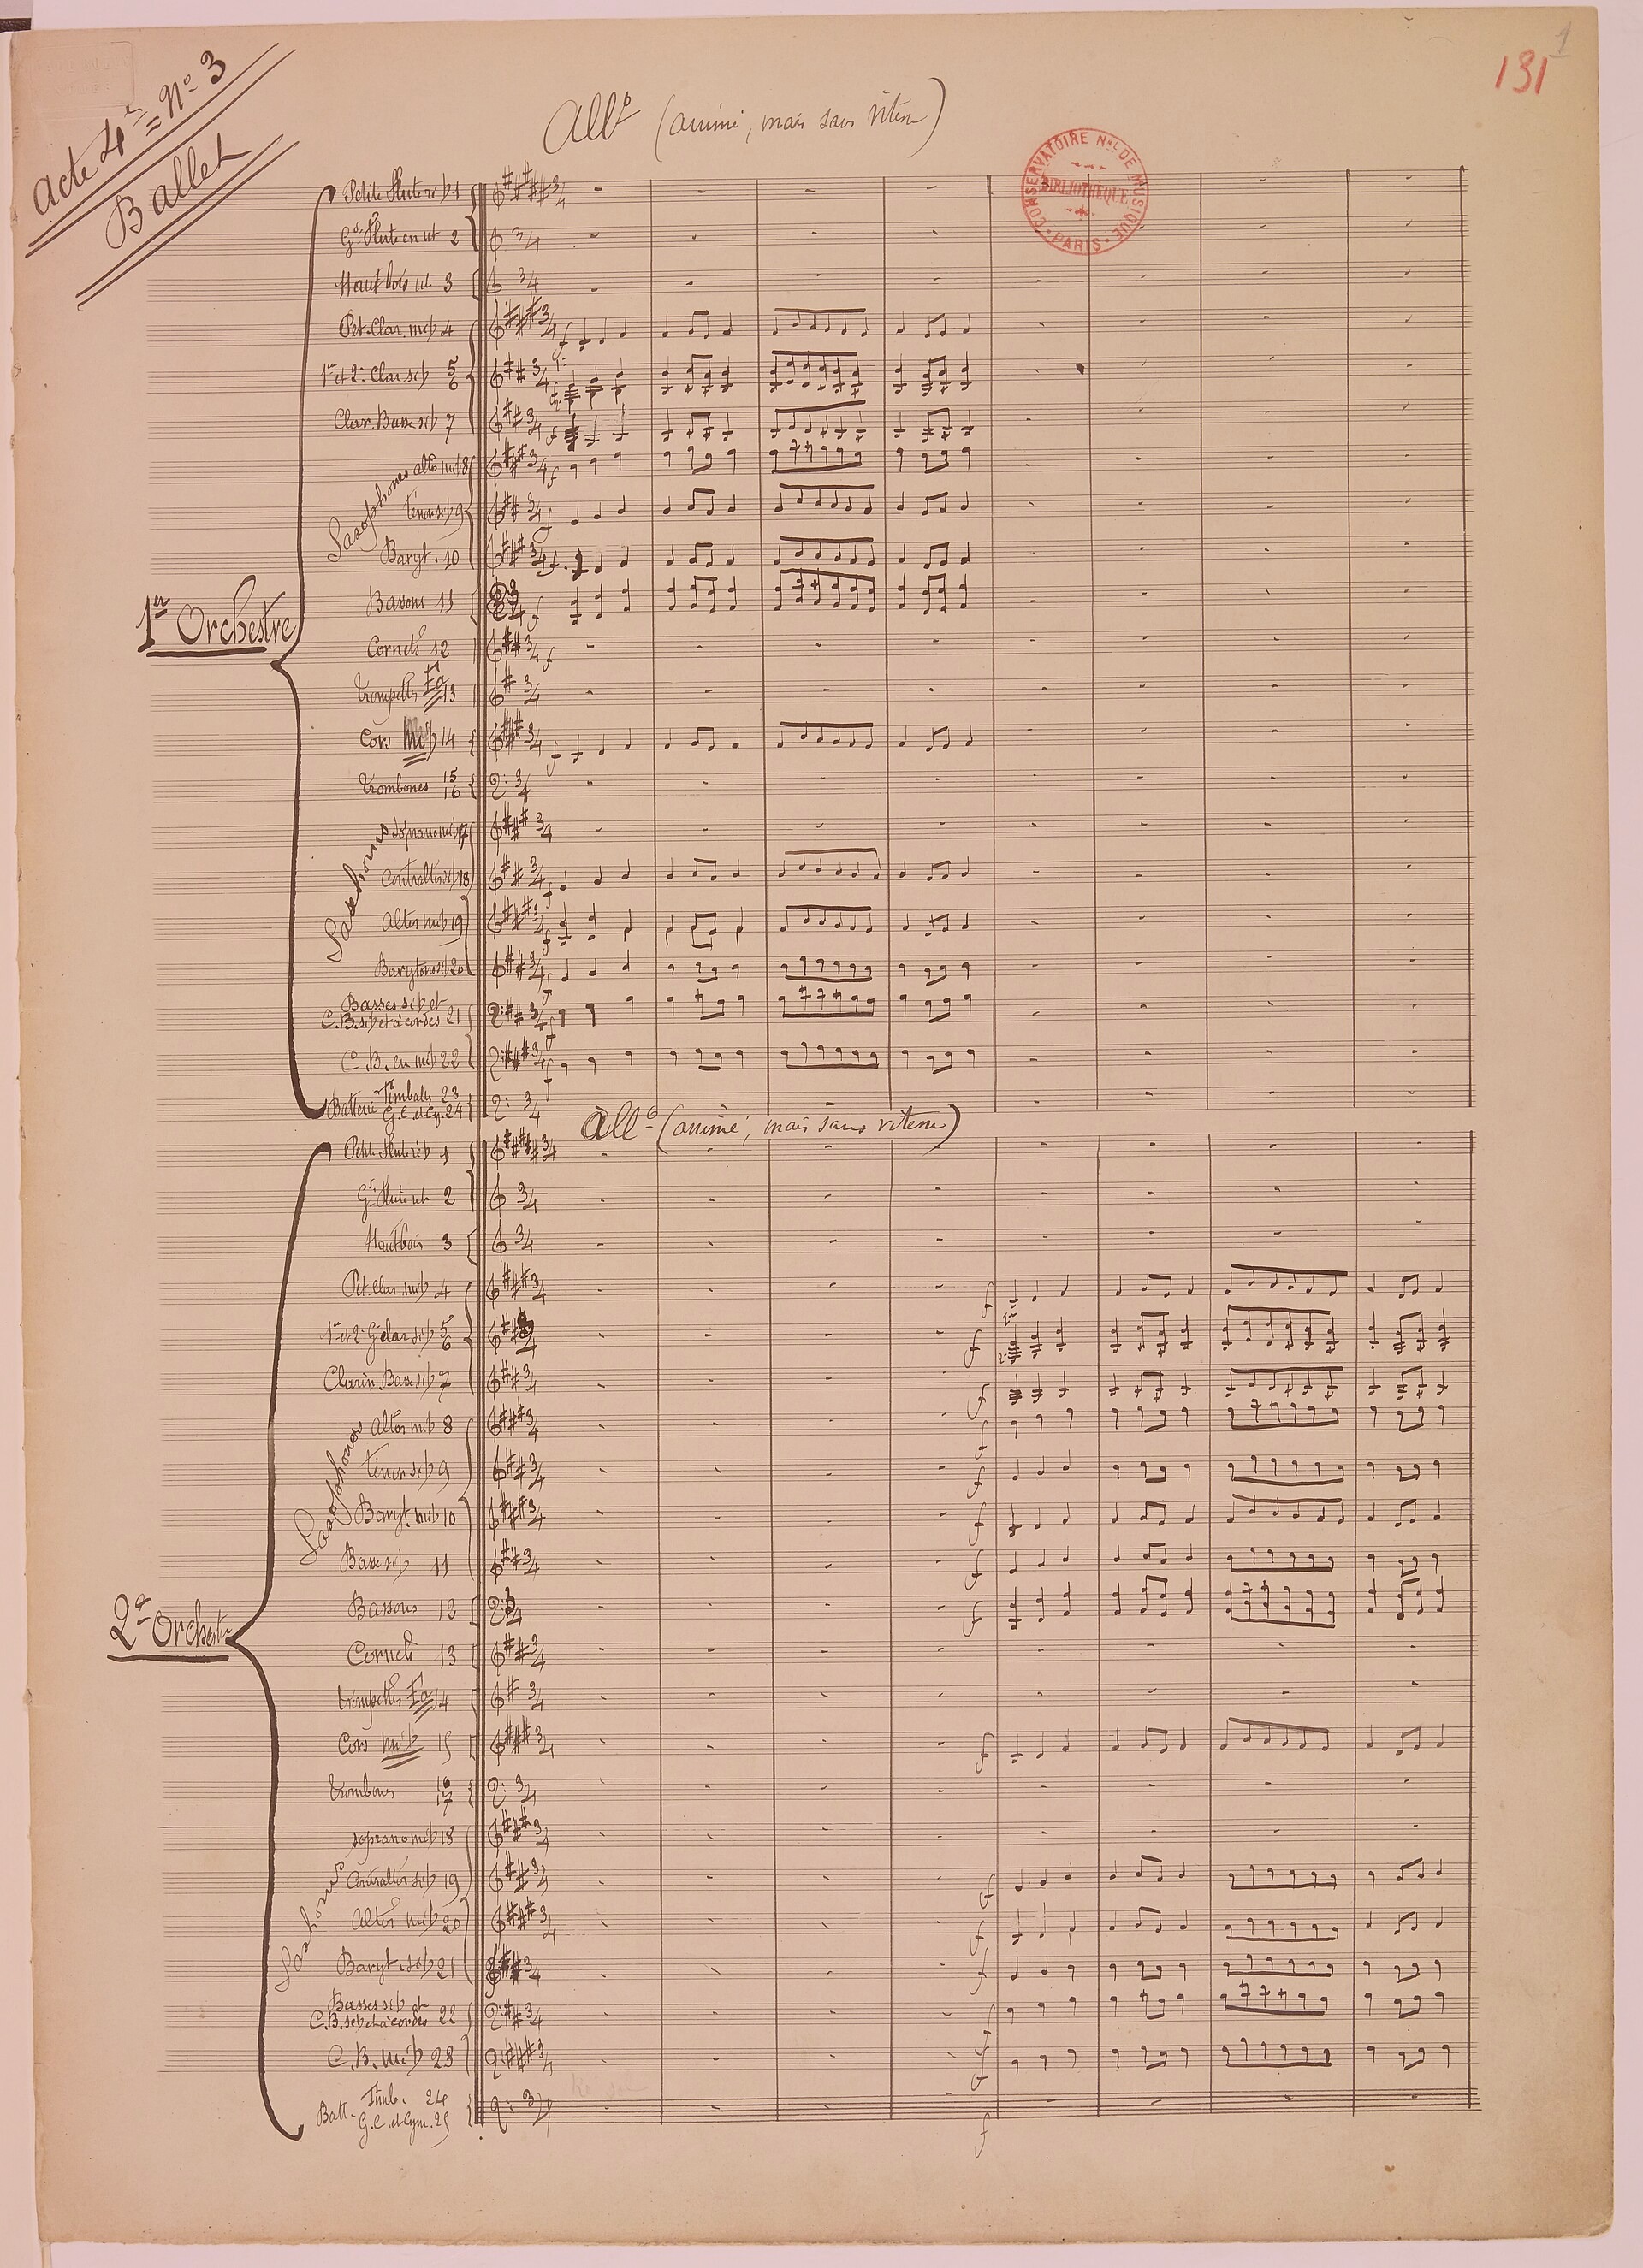 131
1
Acte 4e = No 3
Ballet
Allo (animé, mais sans vitesse)
CONSERVATOIRE NAL DE MUSIQUE
BIBLIOTHÈQUE
PARIS
1er Orchestre
Petite Flûte ré♭ 1
Gde Flûte en ut 2
Hautbois ut 3
Pet. Clar. mi♭ 4
1re et 2e Clar. si♭ 5 6
Clar. Basse si♭ 7
Saxophones
alto mi♭ 8
Ténor si♭ 9
Baryt. 10
Bassons 11
Cornets 12
Trompettes Fa 13
Cors Mi♭ 14
Trombones 15 16
Saxhorns
Soprano mi♭ 17
Contraltos si♭ 18
Altos mi♭ 19
Barytons si♭ 20
Basses si♭ et
C.B. si♭ et à cordes 21
C.B. en mi♭ 22
Batterie Timbales 23
G.C. et Cy. 24
Allo (animé, mais sans vitesse)
2e Orchestre
Petite Flûte ré♭ 1
Gde Flûte ut 2
Hautbois 3
Pet. Clar. mi♭ 4
1re et 2e G Clar si♭ 5 6
Clarin. Basse si♭ 7
Saxophones
Altos mi♭ 8
Ténor si♭ 9
Baryt. mi♭ 10
Basse si♭ 11
Bassons 12
Cornets 13
Trompettes Fa 14
Cors mi♭ 15
Trombones 16 17
Saxhorns
Soprano mi♭ 18
Contraltos si♭ 19
Altos mi♭ 20
Baryt. si♭ 21
Basses si♭ et
C.B. si♭ et à cordes 22
C.B. Mi♭ 23
Batt. Timb. 24
G.C. et Cym. 25